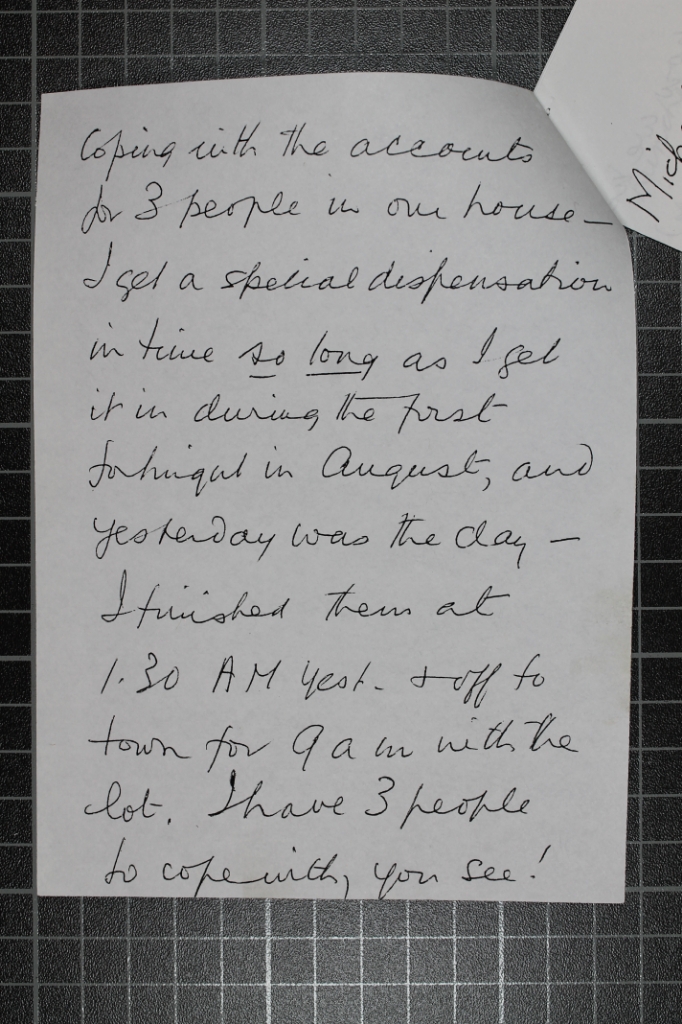 Coping with the accounts
for 3 people in our house —
I get a special dispensation
in time so long as I get
it in during the first
fortnight in August, and
yesterday was the day —
I finished them at
1.30 AM yest. & off to
town for 9 am with the
lot. I have 3 people
to cope with, you see!